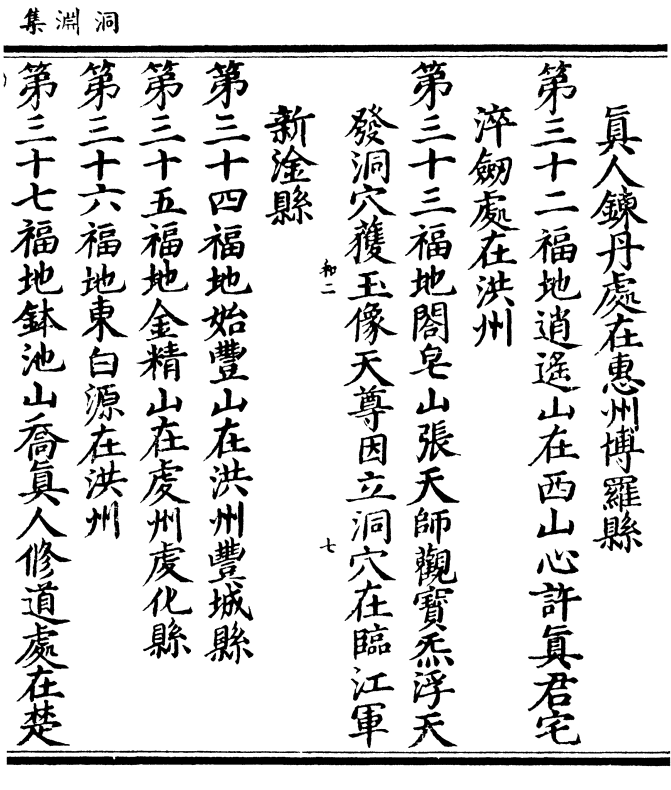 洞淵集
眞人鍊丹處在惠州博羅縣
第三十二福地逍遙山在西山心許眞君宅
淬劒處在洪州
第三十三福地閤皂山張天師觀寶炁浮天
發洞穴獲玉像天尊因立洞穴在臨江軍
和二
七
新淦縣
第三十四福地始豐山在洪州豐城縣
第三十五福地金精山在虔州虔化縣
第三十六福地東白源在洪州
第三十七福地鉢池山喬眞人修道處在楚